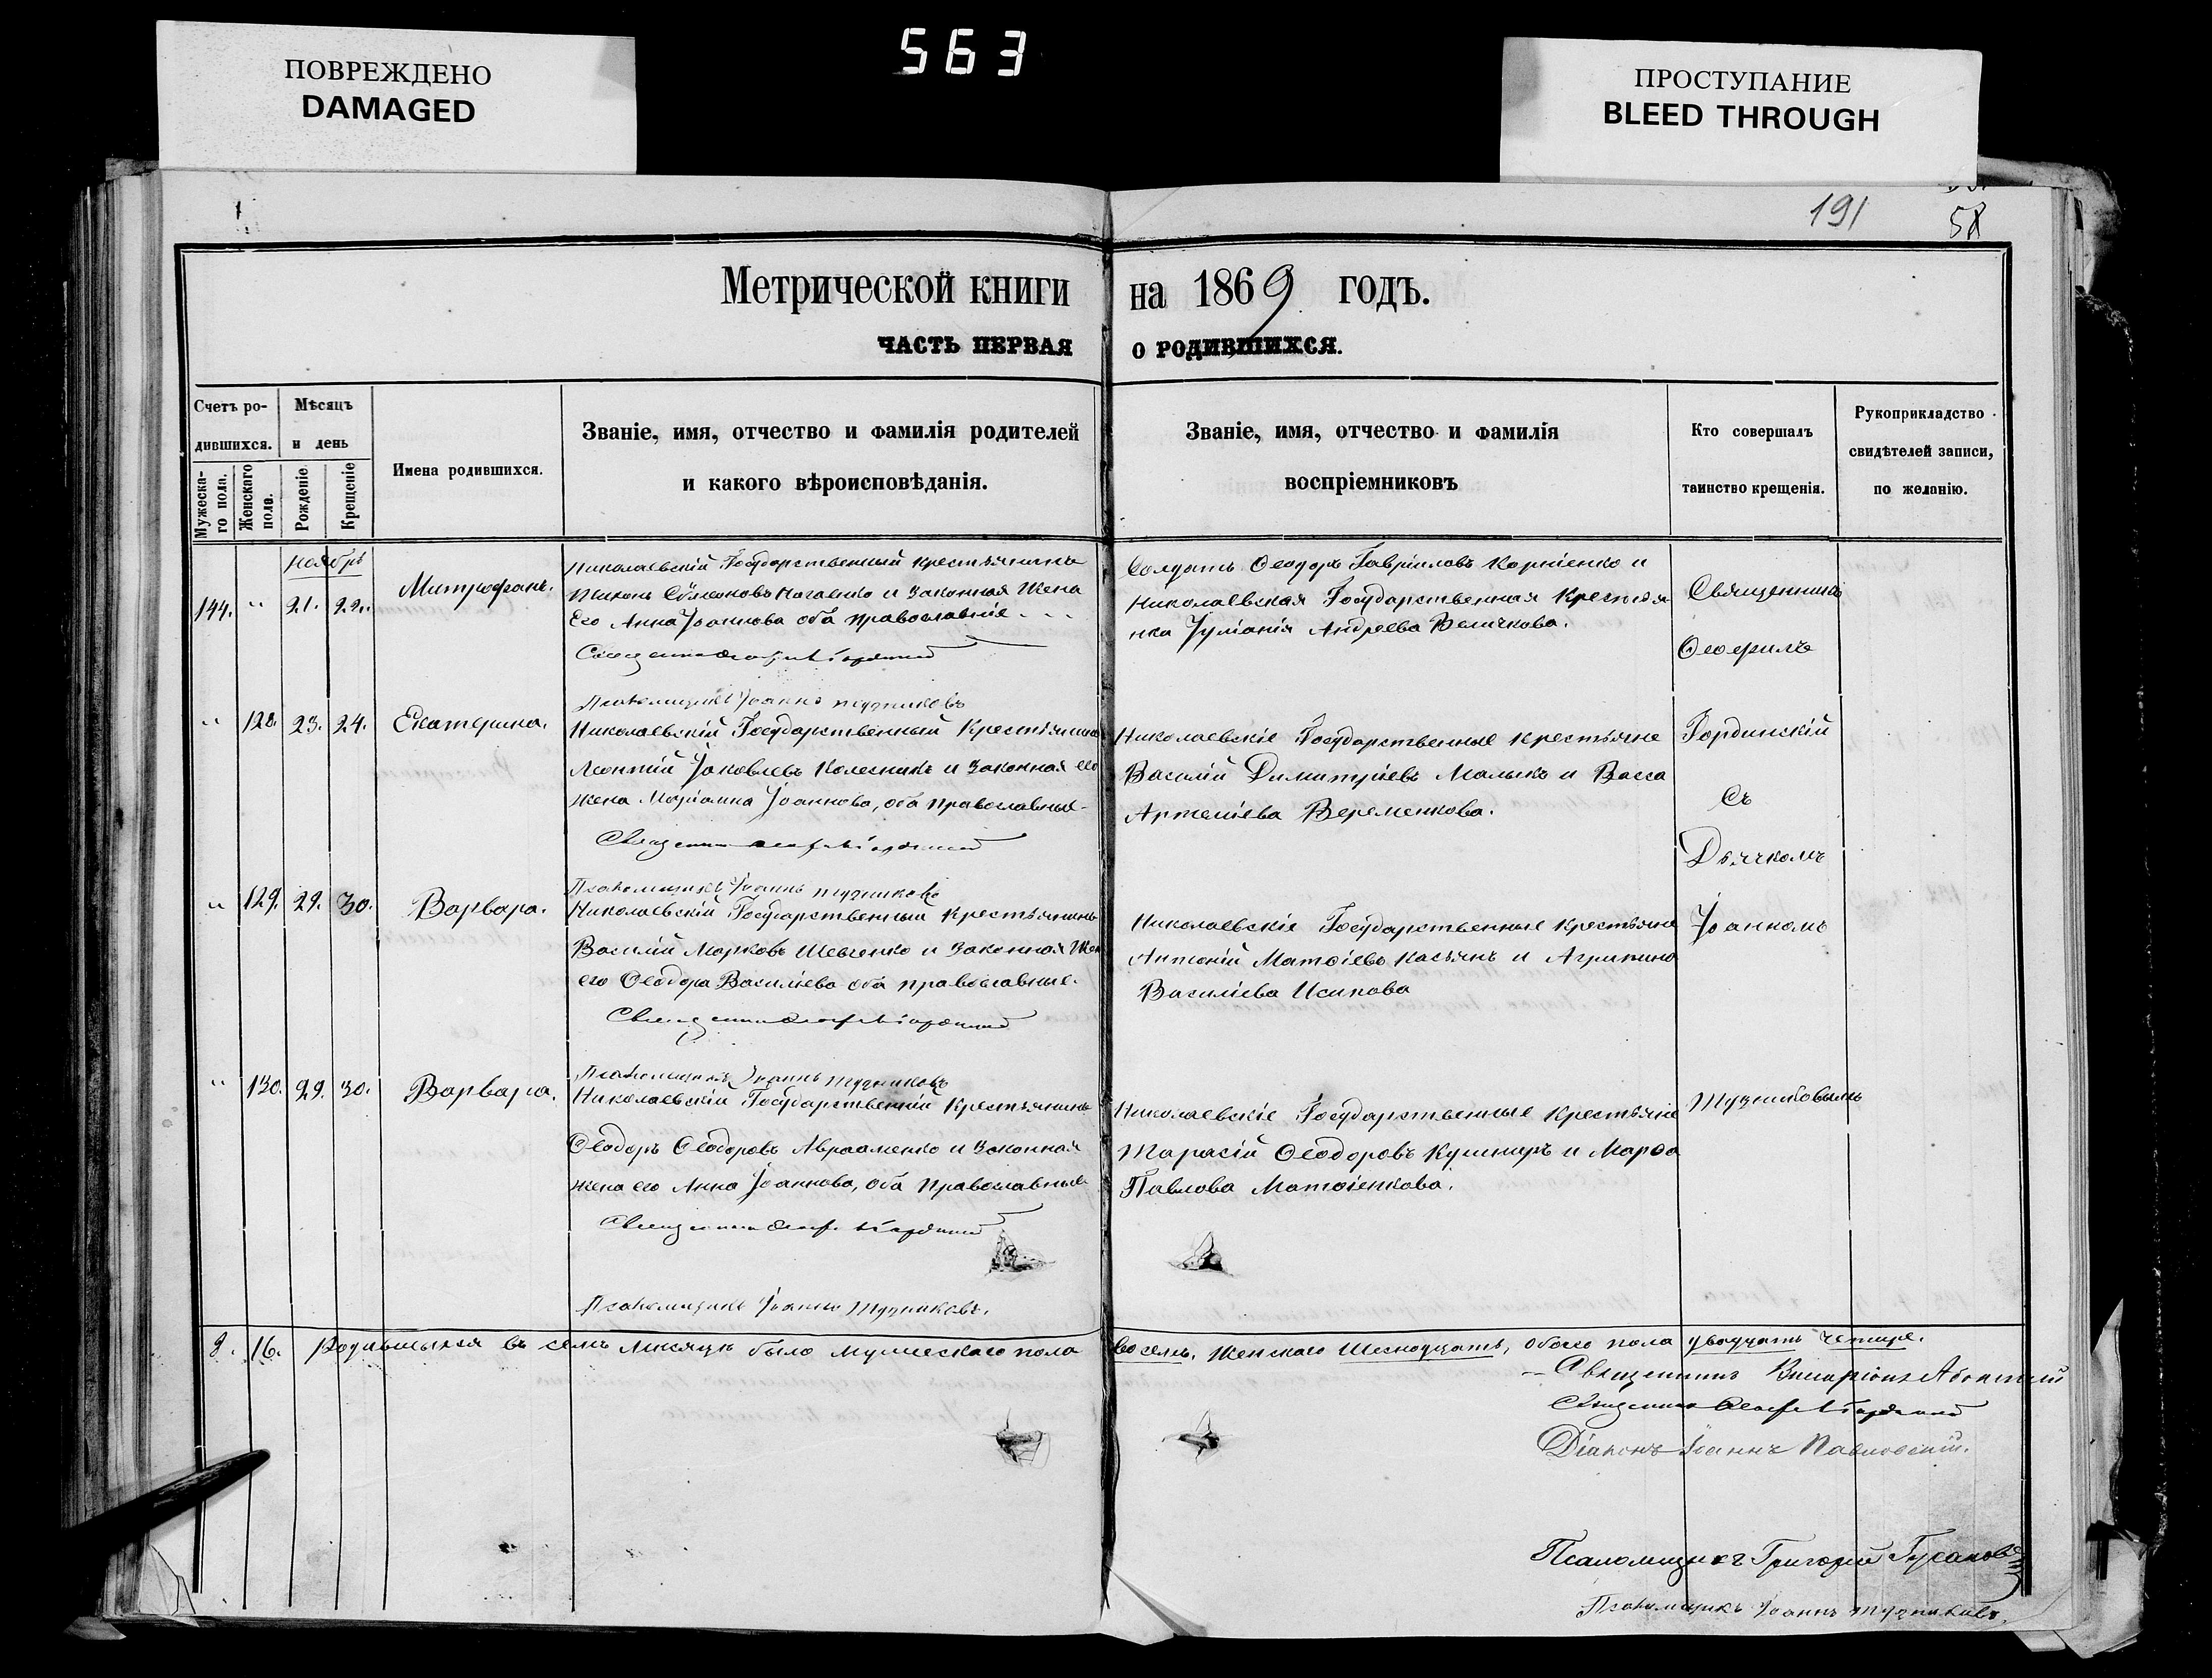 ПОВРЕЖДЕНО
DAMAGED
563
ПРОСТУПАНИЕ
BLEED THROUGH
191
58
Метрической книги на 1869 годъ.
ЧАСТЬ ПЕРВАЯ О РОДИВШИХСЯ.
Счетъ ро-
дившихся.
Мужеска-
го пола.
Женскаго
пола.
Мѣсяцъ
и день
Рожденіе
Крещеніе
Имена родившихся.
Званіе, имя, отчество и фамилія родителей
и какого вѣроисповѣданія.
Званіе, имя, отчество и фамилія
воспріемниковъ
Кто совершалъ
таинство крещенія.
Рукоприкладство
свидѣтелей записи,
по желанію.
ноябрь
144. " 21. 22. Митрофанъ.
Николаевскій Государственный крестьянинъ
и законная Жена
Его Анна Іоаннова оба православніе
Солдатъ Ѳеодоръ Гавріиловъ Корніенко и
Николаевская Государственная Крестья
нка Іуліанія Андреева Величкова.
Священникъ
Ѳеофилъ
Псаломщикъ Іоаннъ Тузниковъ
" 128. 23. 24. Екатерина.
Николаевскій Государственный Крестьянинъ
Леонтій Іаковлевъ Колесникъ и законная его
жена Маріанна Іоаннова, оба православные
Николаевскіе Государственные крестьяне
Василій Димитріевъ Малыкъ и Васса
Артеміева Веременкова.
Гординскій
Съ
Дьячкомъ
Псаломщикъ Іоаннъ Тузниковъ
" 129. 29. 30. Варвара.
Николаевскій Государственный Крестьянинъ
Василій Марковъ Шевченко и Законная Жен
его Ѳеодора Василіева оба православные.
Николаевскіе Государственные крестьяне
Антоній Матѳіевъ Касьянъ и Агрипина
Василіева Исипова
Іоанномъ
Псаломщикъ Іоаннъ Тузниковъ
" 130. 29. 30. Варвара.
Николаевскій Государственній Крестьянинъ
Ѳеодоръ Ѳеодоровъ Авраменко и Законная
жена его Анна Іоаннова, оба Православные
Николаевскіе Государственные крестьяне
Тарасій Ѳеодоровъ Кушниръ и Марѳа
Павлова Матѳіенкова.
Тузниковымъ
Псаломщикъ Іоаннъ Тузниковъ.
8. 16. Родившихся въ семъ Мисяцѣ было Мужескаго пола восемь, Женскаго Шеснодцать, обоего пола двадцать четире.
Священникъ
Священникъ
Діаконъ Іоаннъ Павловскій.
Псаломщикъ Григорій Гусаковъ
Псаломщикъ Іоаннъ Тузниковъ.